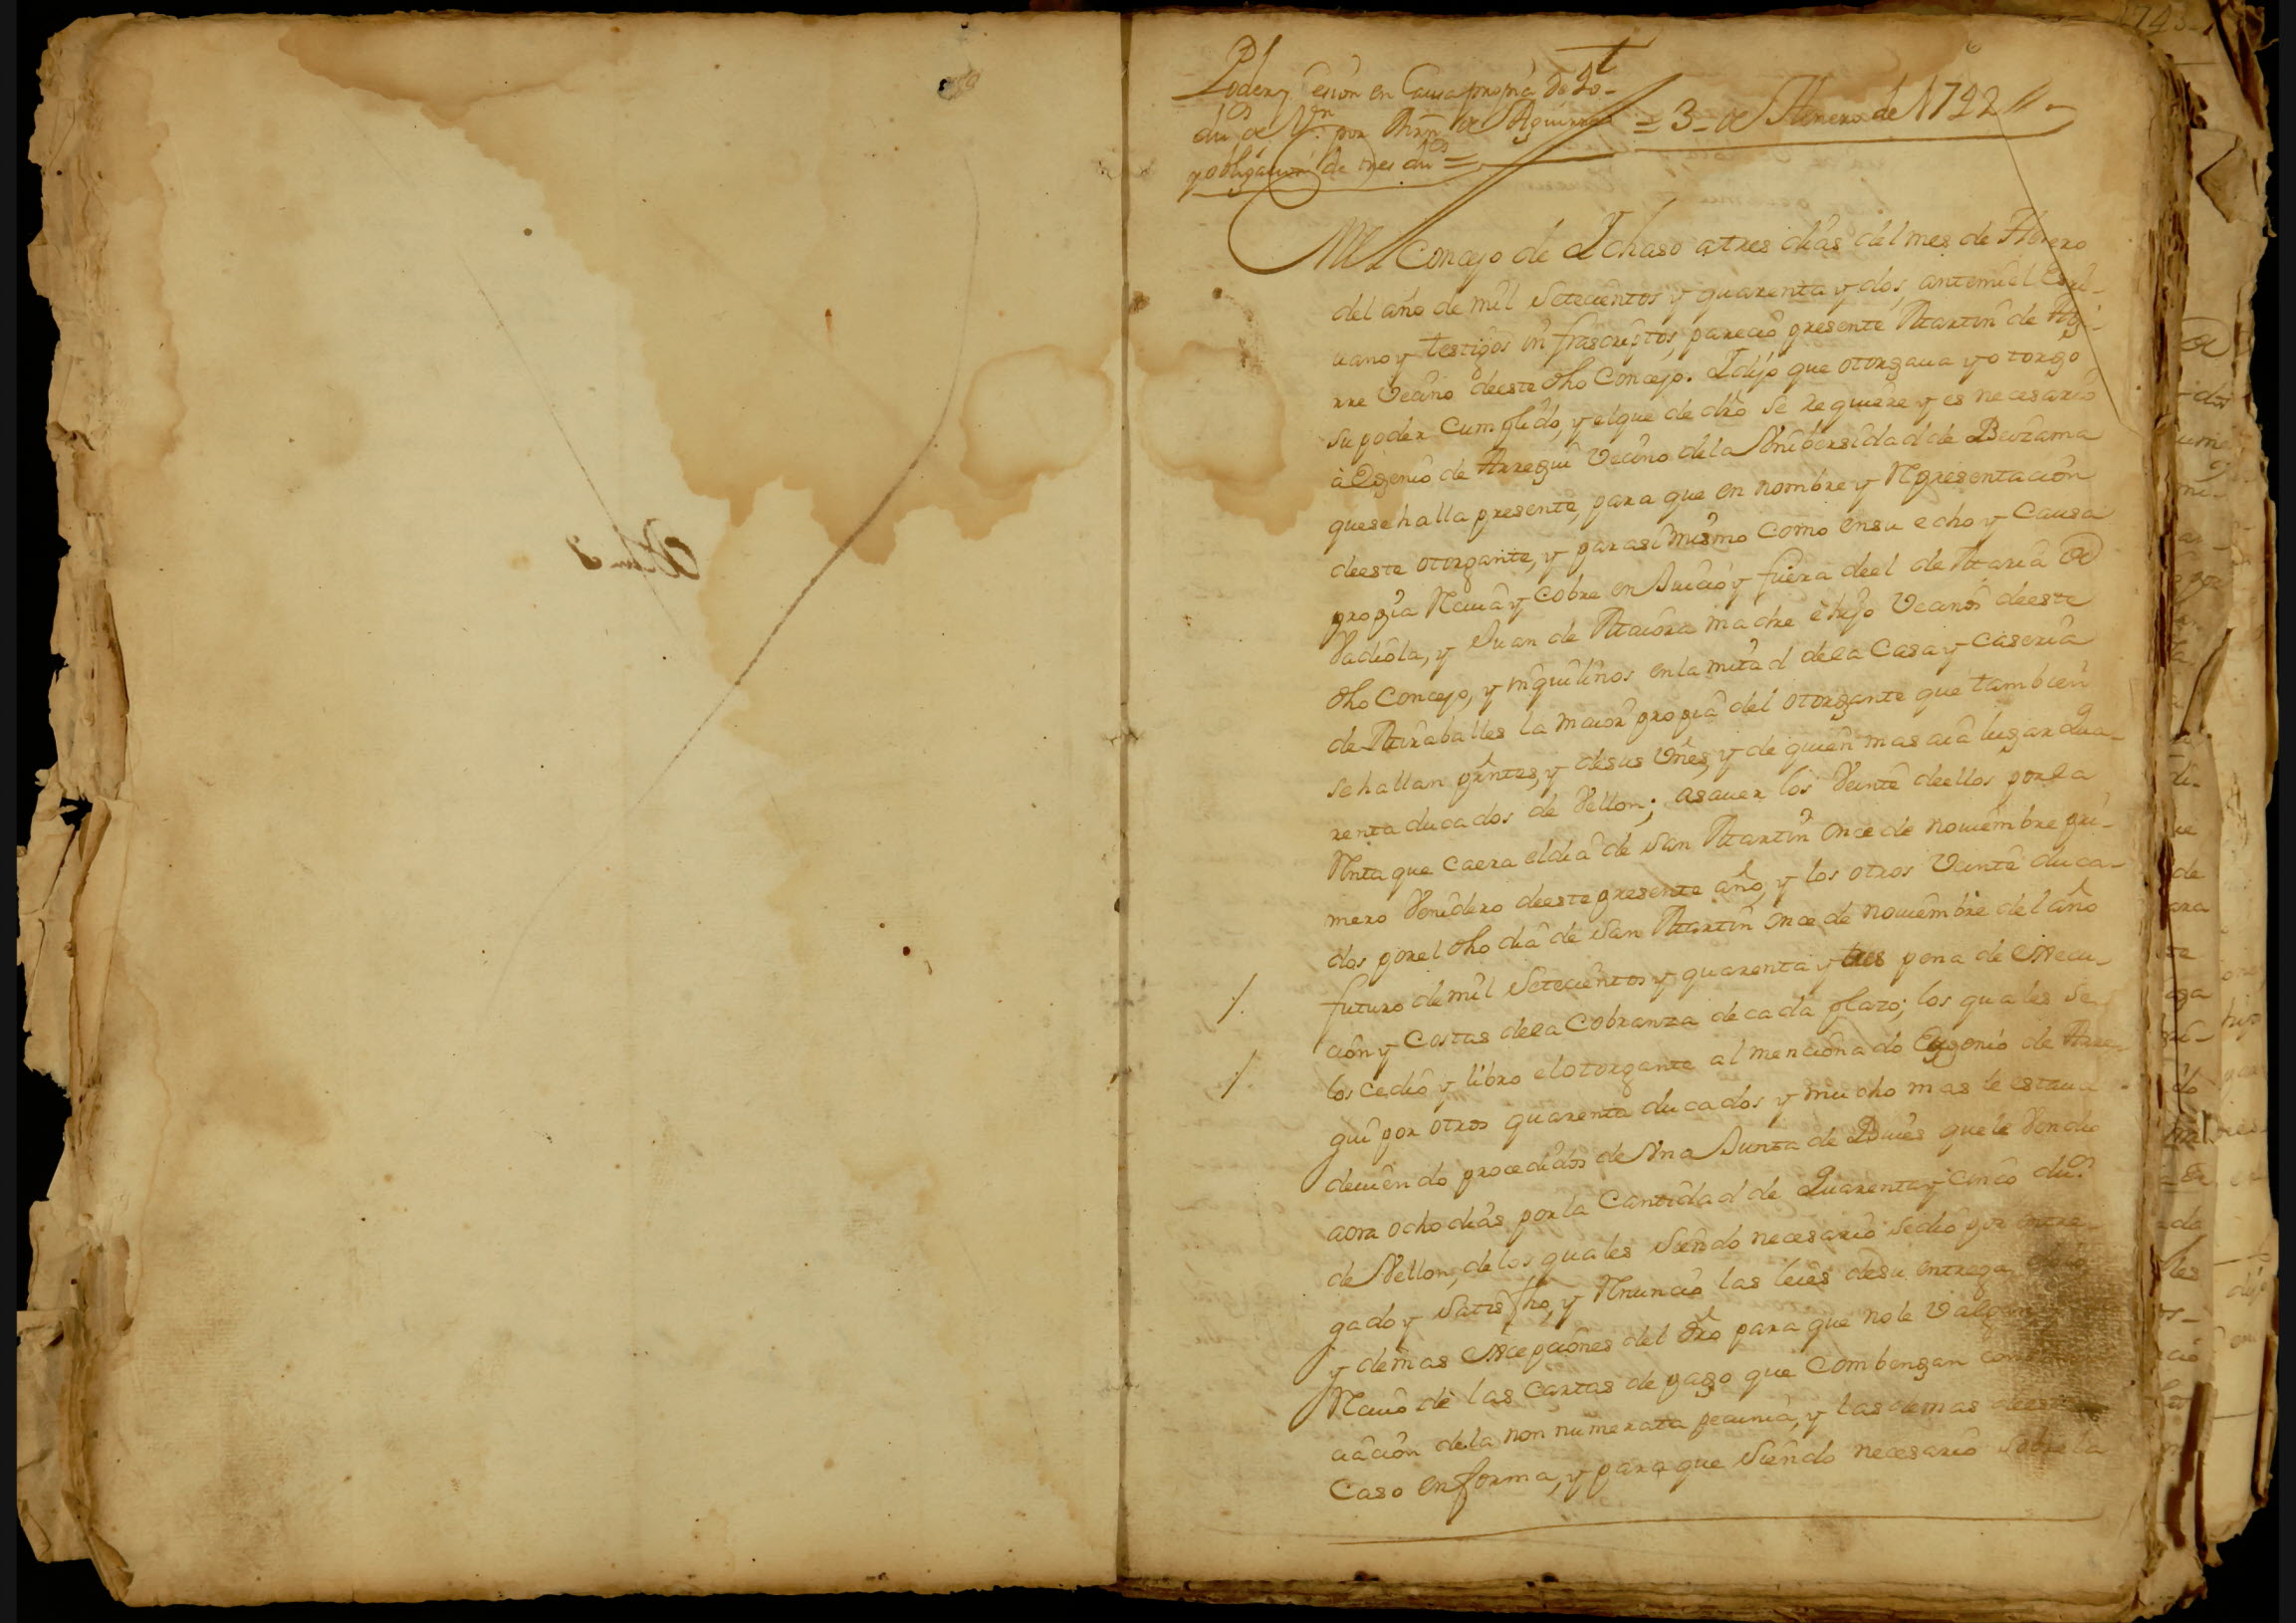 Poder y cesion en Causa propria de 40
du.os de V.n por Mrn de Aguirre
y obligazion de tres du.os =
= 3 de Henero de 1742 //
En el Concejo de Ichaso a tres dias del mes de Henero
del año de mil Setecientos y quarenta y dos, ante mi el Escri-
uano y testigos infrascriptos, parecio presente Martin de Agi-
rre Vecino deeste dho Concejo. I dijo que otorgaua y otorgo
su poder Cumplido, y el que de dro se requiere y es necesario
à Egenio de Arregui Vecino de la Unibersidad de Beizama
que se halla presente, para que en nombre y Representacion
deeste otorgante, y para si mismo como en su echo y Causa
propia Reciua y Cobre en Juicio y fuera de el de Maria de
Vadiola, y Juan de Maiora madre è hijo Vecinos deeste
dho Concejo, y inquilinos en la mitad dela Casa y Caseria
de Miraballes la maior propia del otorgante que tambien
se hallan presntes, y de sus Vnes, y de quien mas aia lugar qua-
renta ducados de Vellon; asauer los Veinte deellos por la
Renta que Caera el dia de San Martin Once de nouiembre pri-
mero Venidero deeste presente año, y los otros Veinte duca-
dos por el dho dia de San Martin Once de nouiembre del año
futuro de mil Setecientos y quarenta y tres pena de execu-
cion y Costas dela Cobranza de cada plazo; los quales se
los cedio y libro el otorgante al mencionado Eugenio de Arre-
gui por otros quarenta ducados y mucho mas le estaua
deuiendo procedidos de Una Junta de Bueis que le Vendio
aora ocho dias por la Cantidad de Quarenta y Cinco du.os
de Vellon, de los quales Siendo necesario se dio por entre-
gado y Satisfho, y Renuncio las leies de su entrega,
y demas excepciones del dro para que no le Valgan
Reciuo de las Cartas de pago que Combengan con
ciacion dela non numerata pecunia, y las demas deeste
Caso en forma, y para que Siendo necesario Sobre la